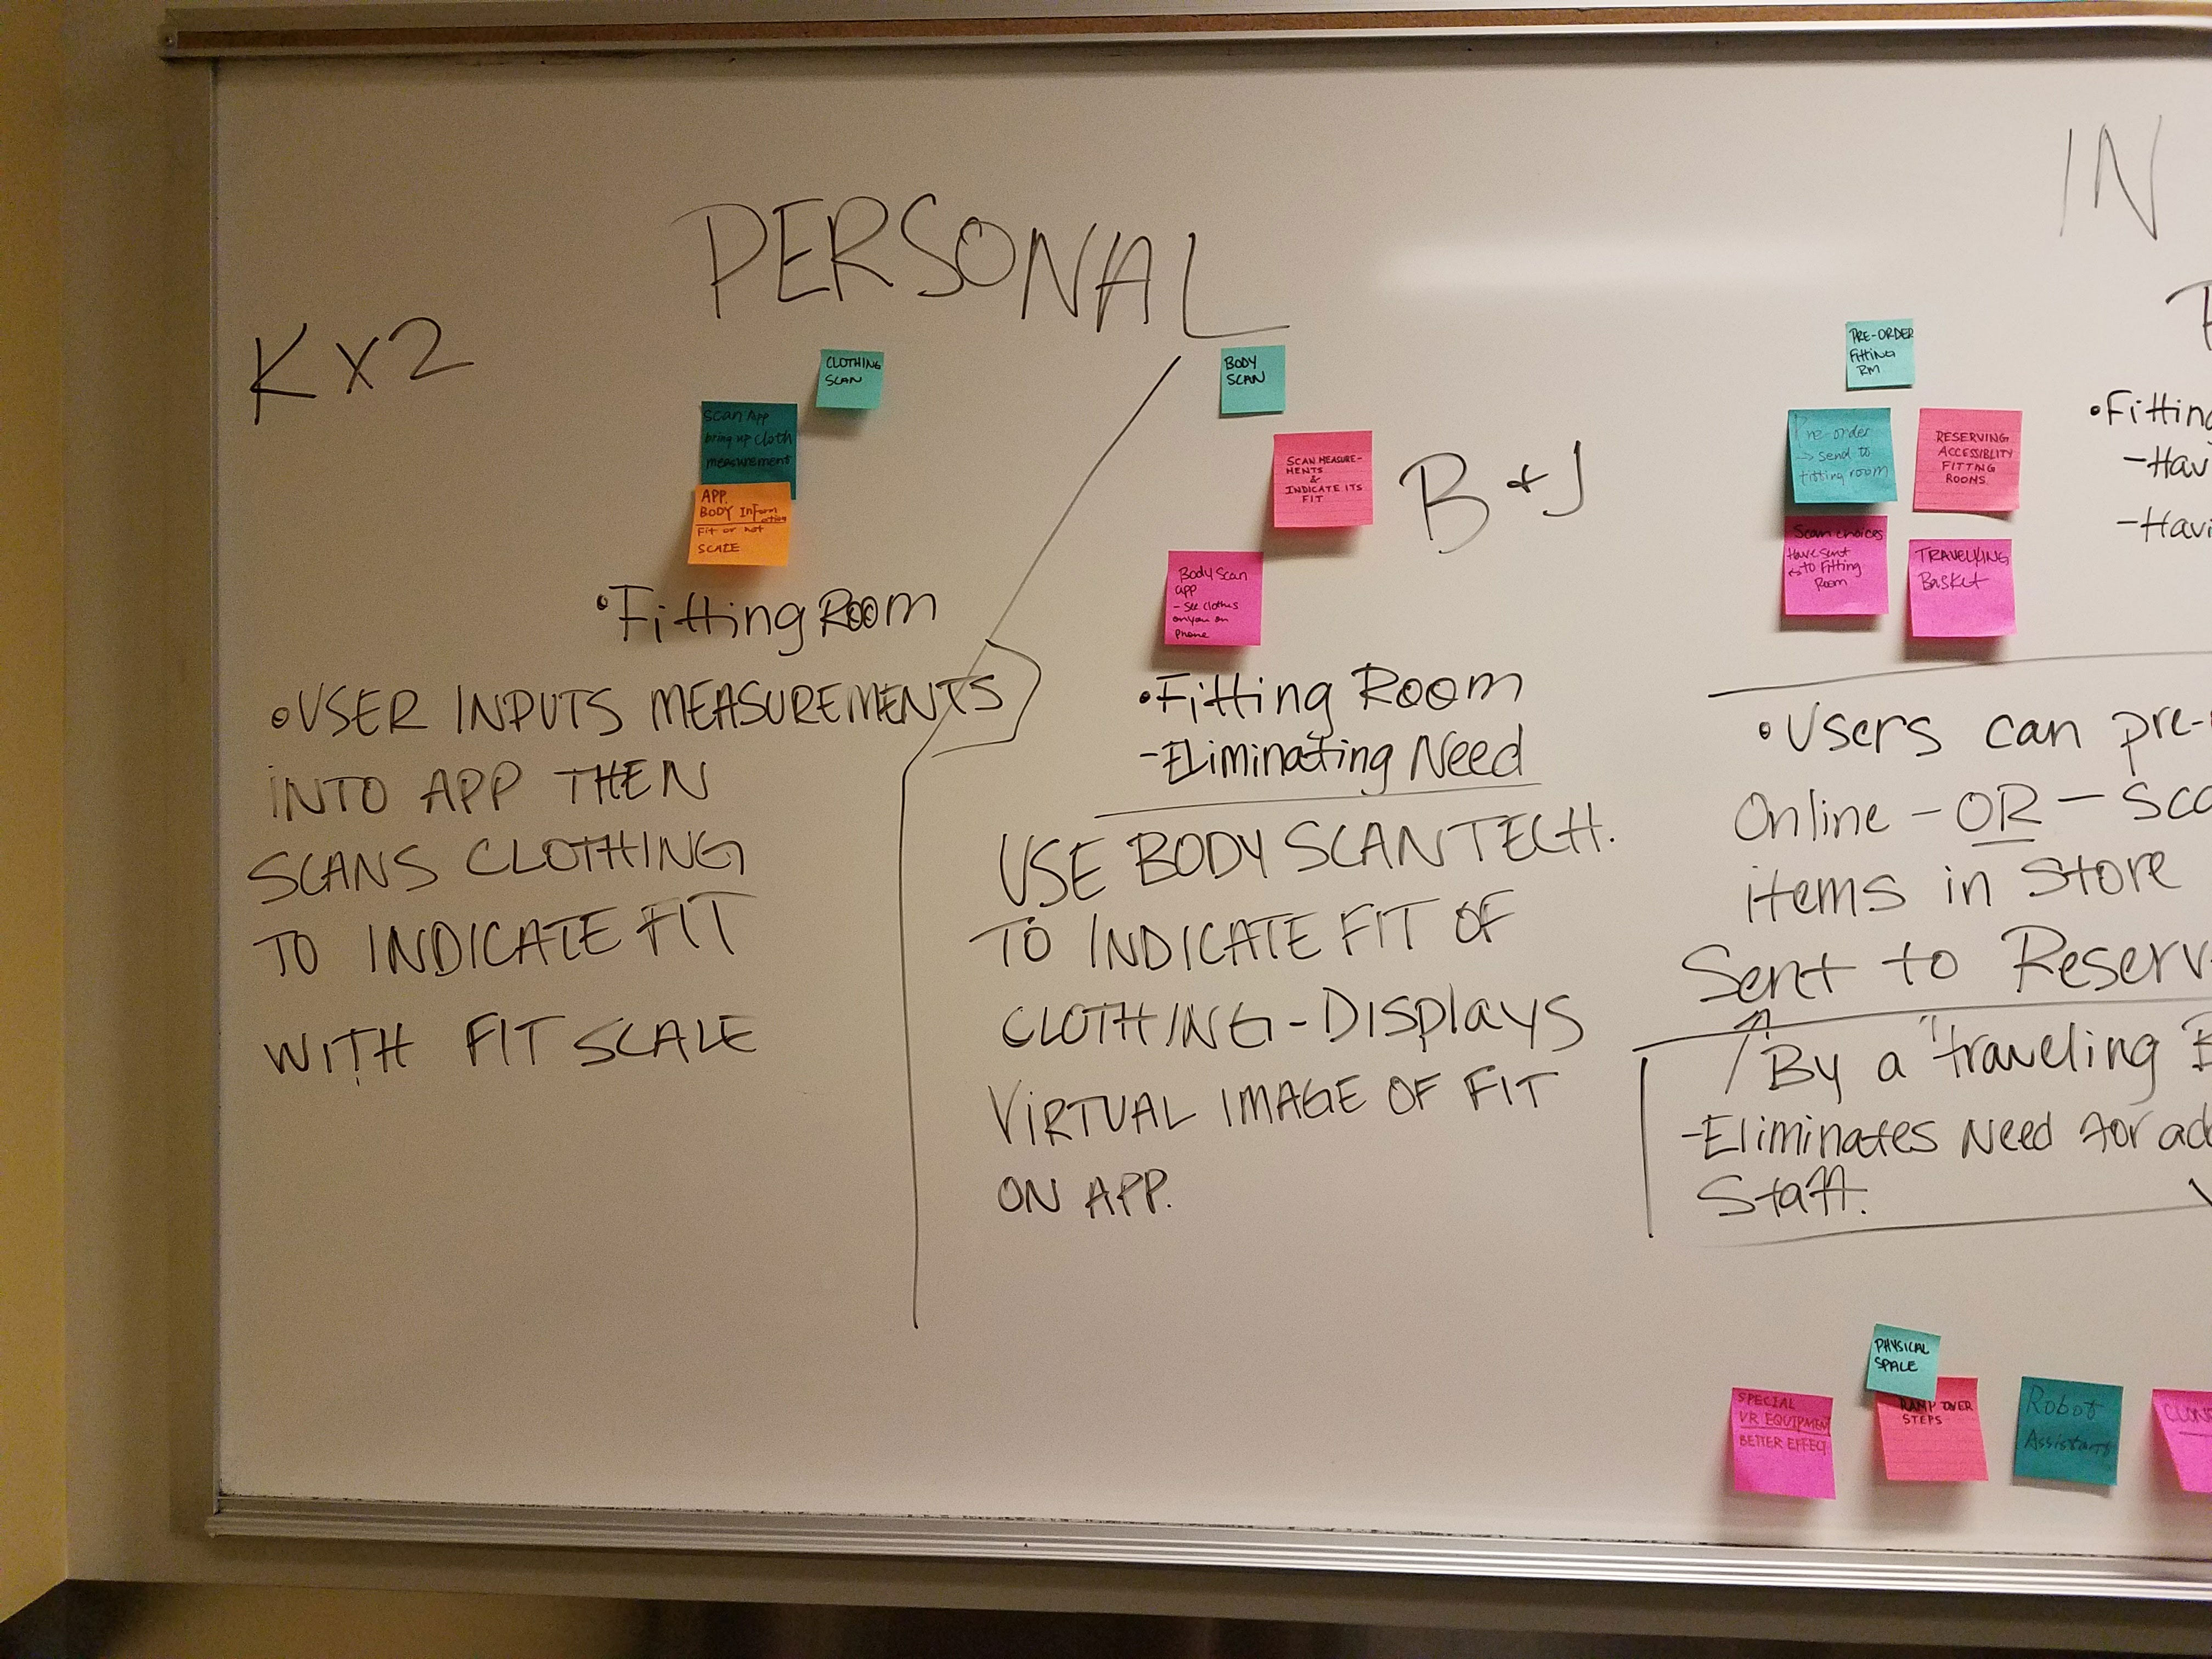 PERSONAL
K x 2
CLOTHING
SCAN
Scan App
bring up cloth
measurement
APP.
BODY Information
Fit or not
SCALE
•Fitting Room
•USER INPUTS MEASUREMENTS
INTO APP THEN
SCANS CLOTHING
TO INDICATE FIT
WITH FIT SCALE
BODY
SCAN
SCAN MEASURE-
MENTS
&
INDICATE ITS
FIT
B + J
Body Scan
app
- See clothes
on you on
phone
•Fitting Room
-Eliminating Need
USE BODY SCAN TECH.
TO INDICATE FIT OF
CLOTHING-Displays
VIRTUAL IMAGE OF FIT
ON APP.
IN
PRE-ORDER
Fitting
RM
Pre-order
→ send to
fitting room
RESERVING
ACCESSIBLITY
FITTING
ROOMS
Scan choices
Have sent
to Fitting
Room
TRAVELING
Basket
•Fitting
-Hav
-Havi
•Users can pre-
Online - OR - Sca
items in Store
Sent to Reserv
By a "traveling B
-Eliminates Need for ad
Staff.
PHYSICAL
SPACE
SPECIAL
VR EQUIPMENT
BETTER EFFECT
RAMP OVER
STEPS
Robot
Assistants